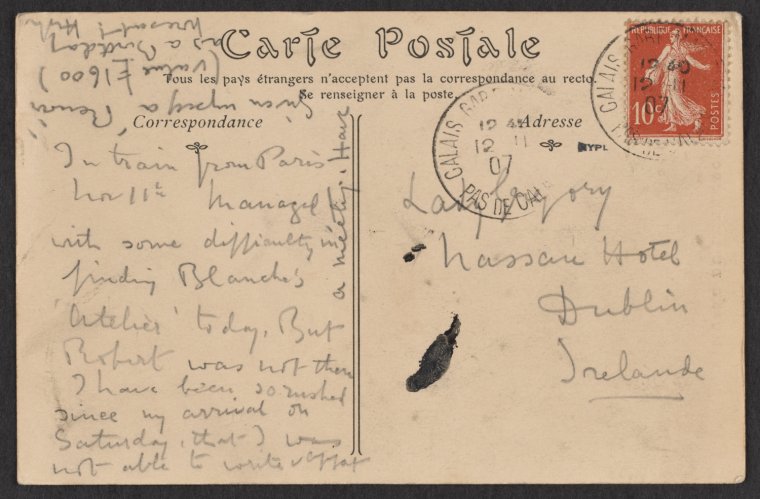 Carte Postale
Tous les pays étrangers n'acceptent pas la correspondance au recto.
Se renseigner à la poste.
Correspondance
Adresse
In train from Paris
Nov 11th Managed
with some difficulty in
finding Blanche's
'atelier' today, But
Robert was not there
I have been so rushed
since my arrival on
Saturday, that I was
not able to write &
a meeting. Have
given myself a 'Renoir'
(value £1600)
as a Birthday
present! Hugh
Lady Gregory
Nassau Hotel
Dublin
Irelande
NYPL
REPUBLIQUE FRANÇAISE
10
POSTES
CALAIS
12
12 11
07
PAS DE CALAIS
CALAIS
12 40
12 11
07